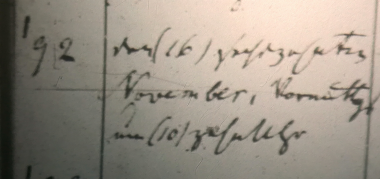 192 den (16) sechszehnten
November, Vormittgs
um (10) zehn Uhr